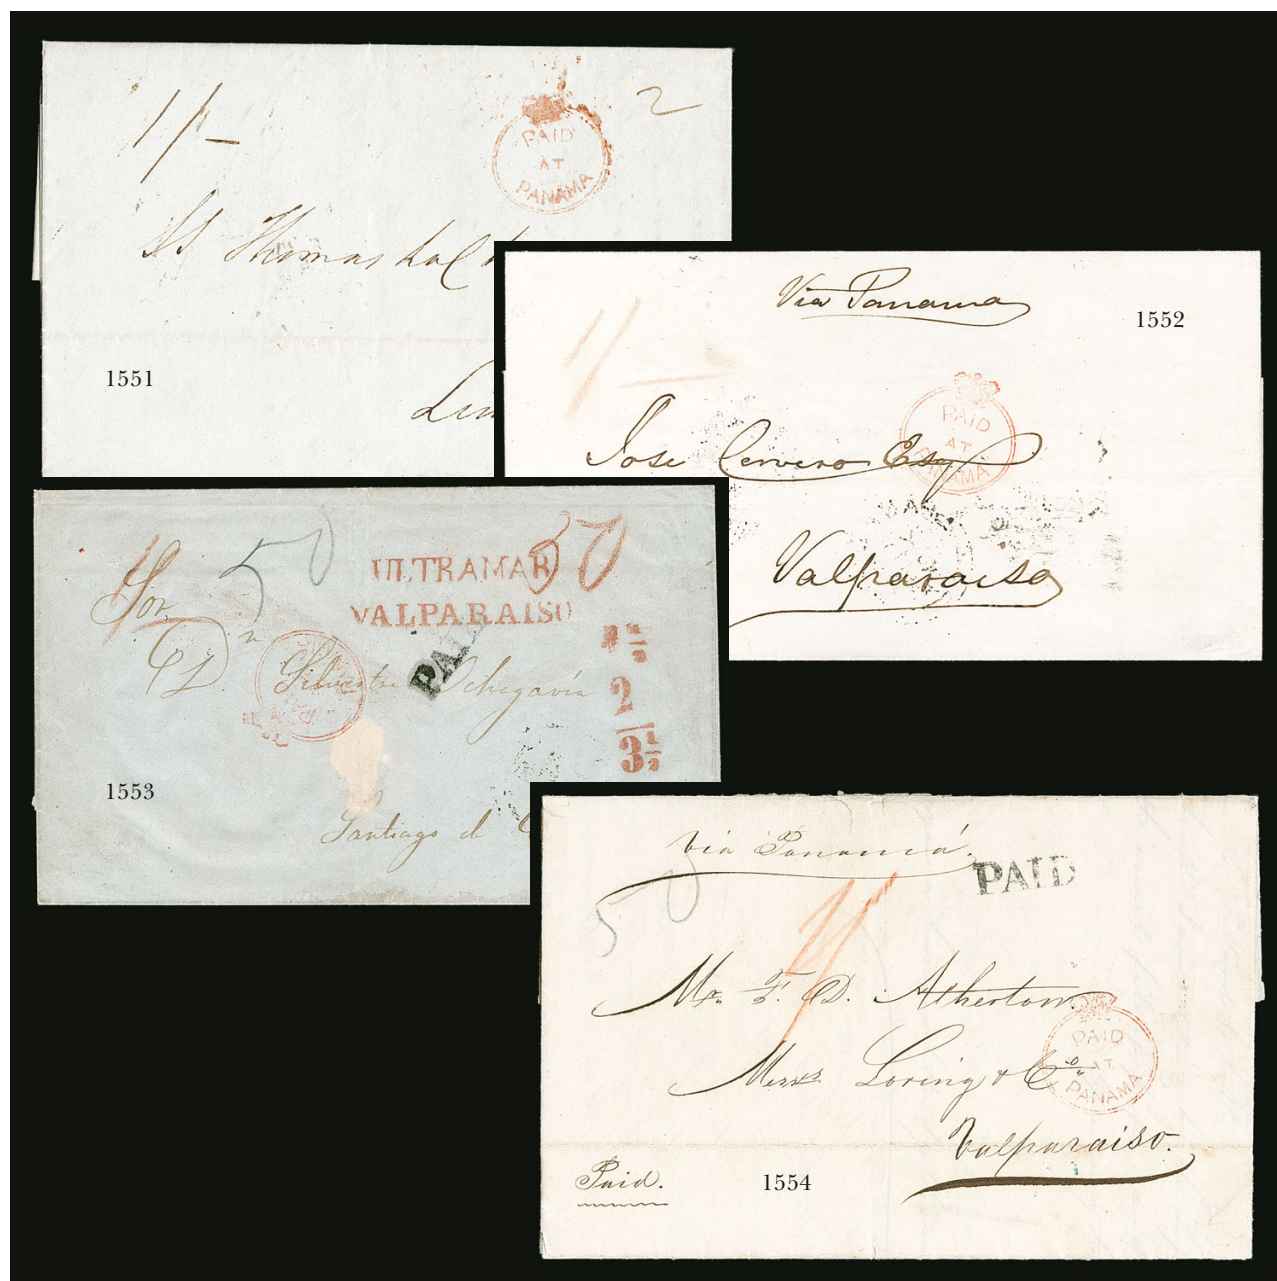 1/-
2
PAID
AT
PANAMA
Thomas
1551
Via Panama
1552
1/-
PAID
AT
PANAMA
Jose Cervero Esqr
Valparaiso
50
50
ULTRAMAR
VALPARAISO
Sor
Dn
PAID
Silvestre Ochagavia
1½
2
3½
1553
Santiago de
Via Panamá.
PAID
50
1/
Mr. F. D. Atherton
PAID
AT
PANAMA
Messrs. Loring & Co.
Valparaiso.
Paid.
1554